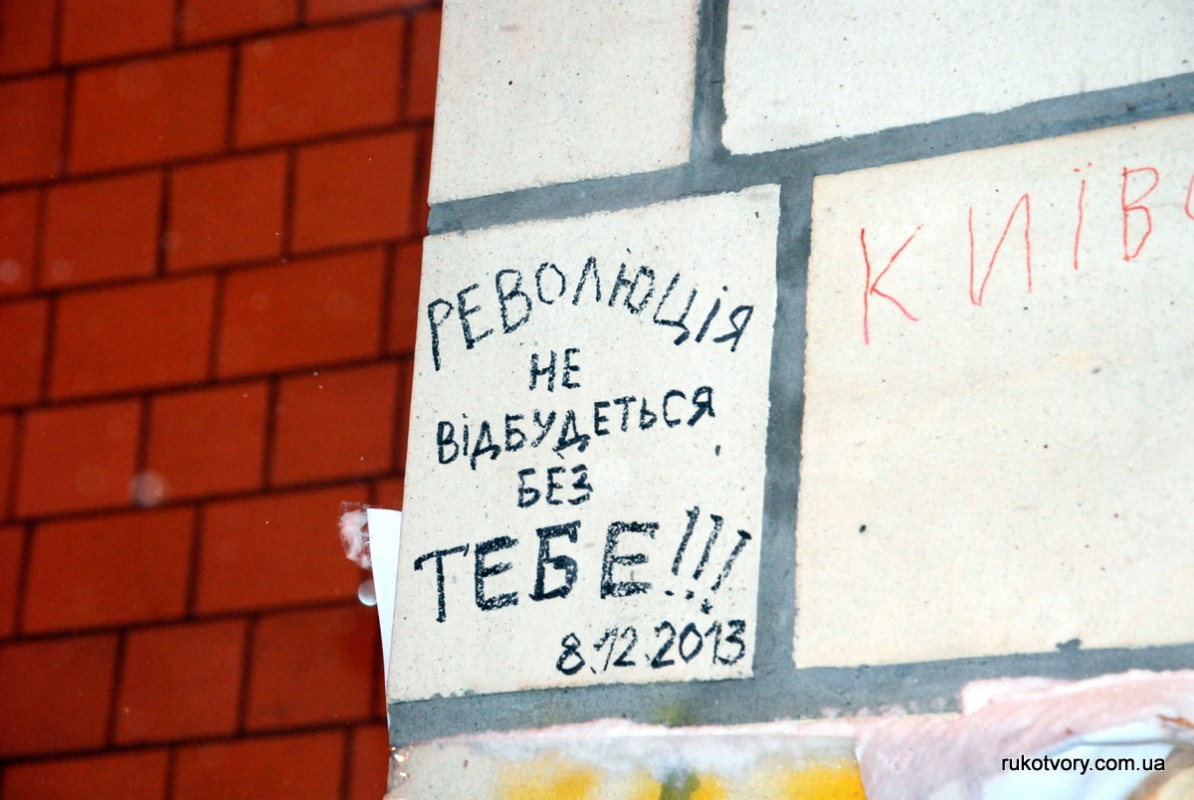 РЕВОЛЮЦІЯ
НЕ
ВІДБУДЕТЬСЯ
БЕЗ
ТЕБЕ!!!
8.12.2013
rukotvory.com.ua